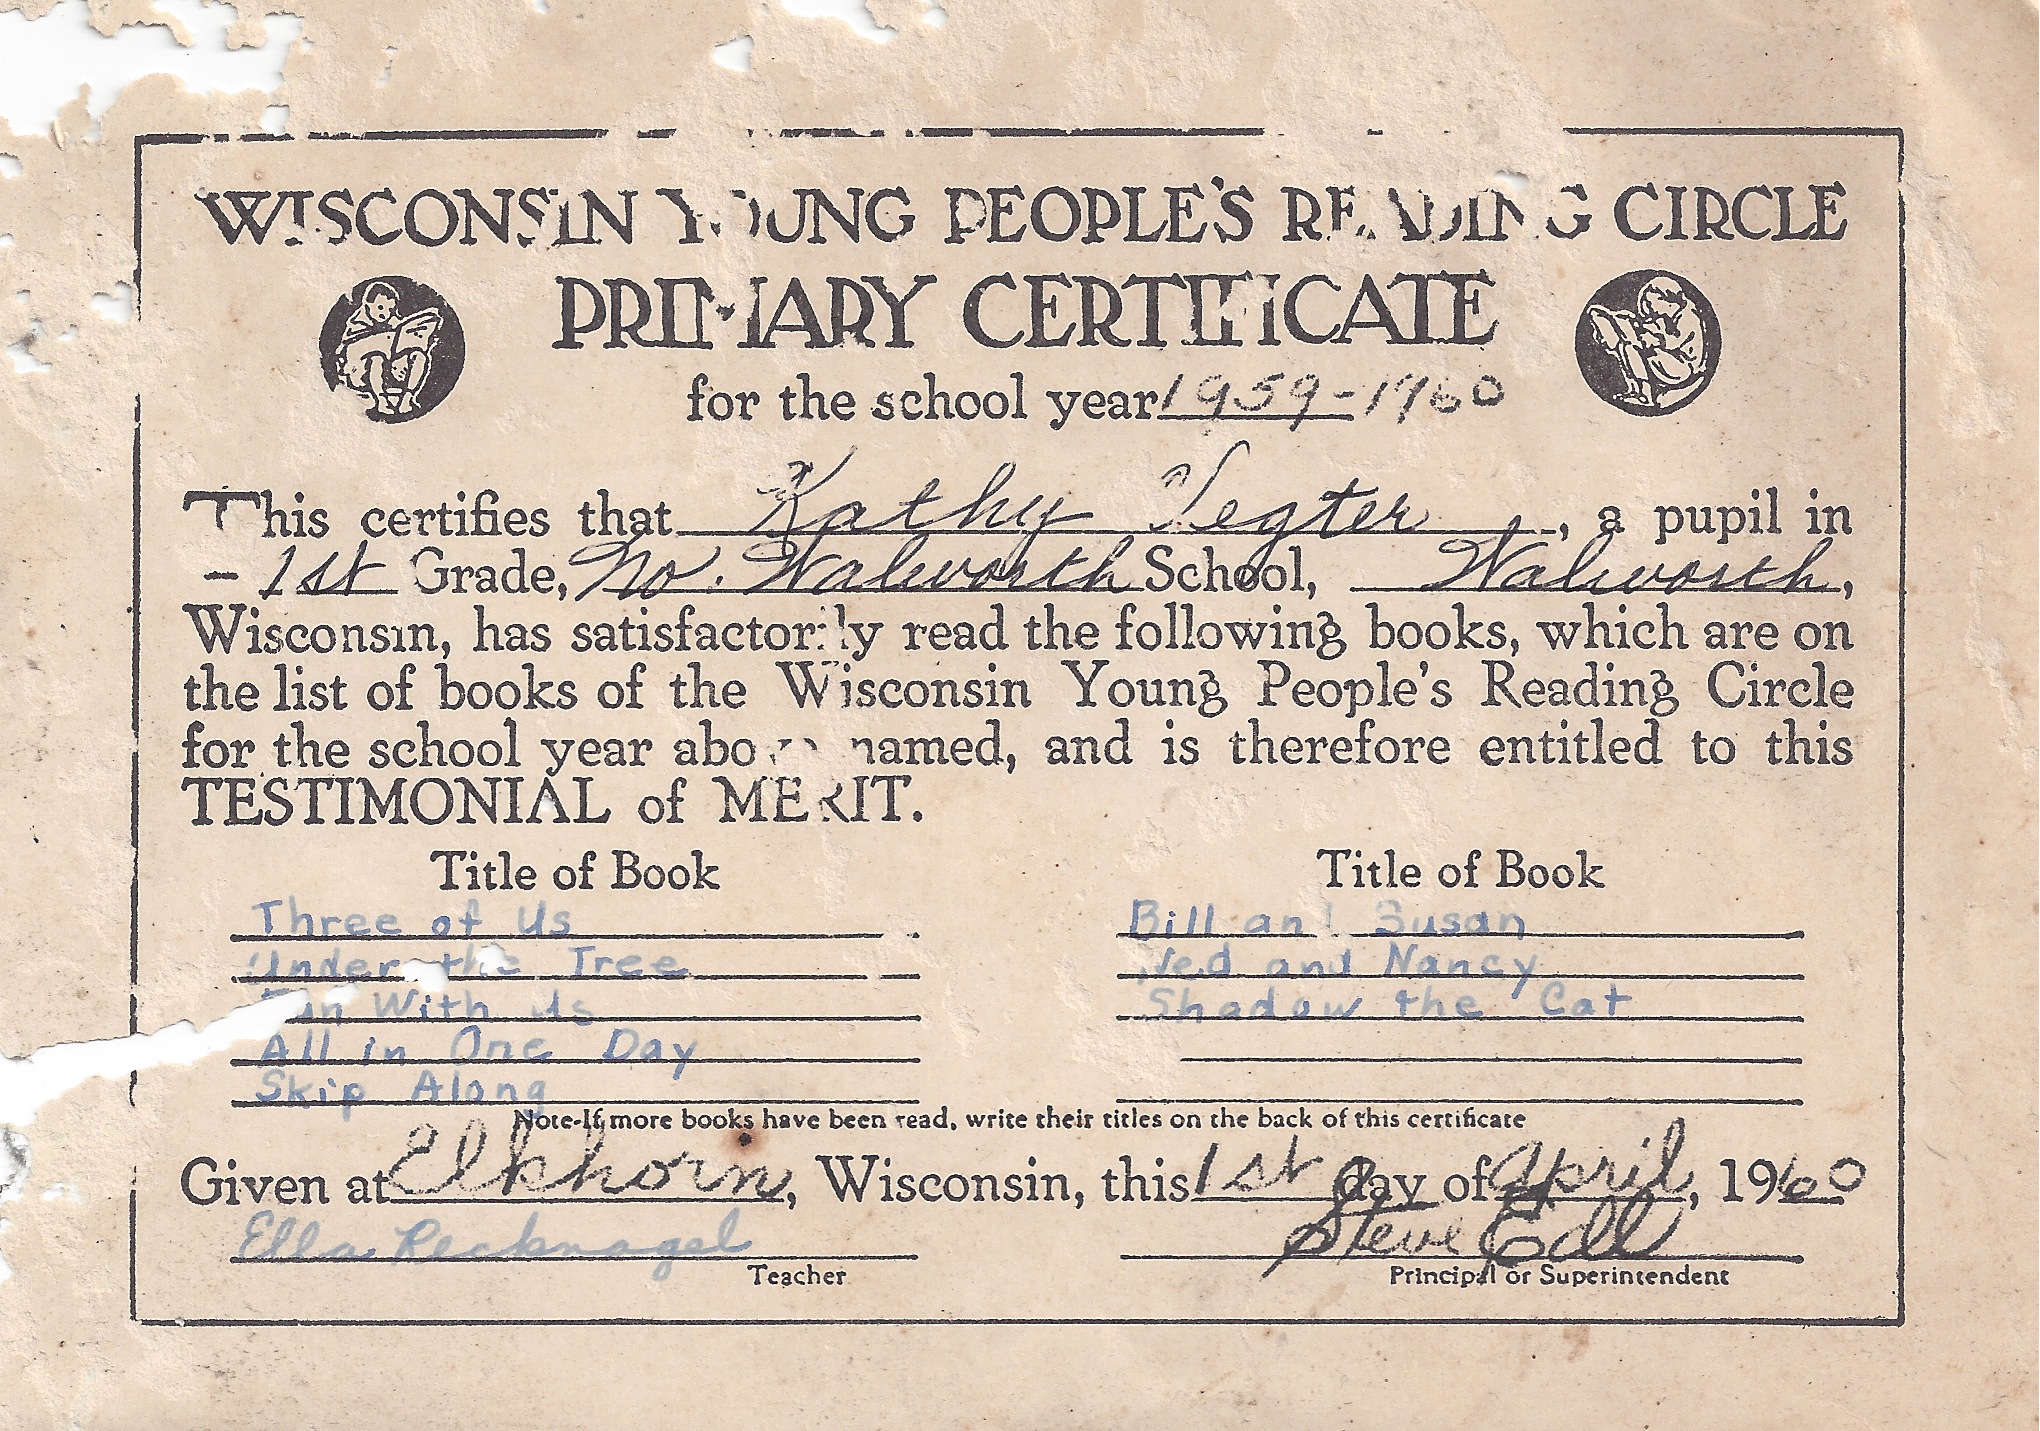 WISCONSIN YOUNG PEOPLE'S READING CIRCLE
PRIMARY CERTIFICATE
for the school year 1959-1960
This certifies that Kathy Tegter, a pupil in
1st Grade, No. Walworth School, Walworth,
Wisconsin, has satisfactorily read the following books, which are on
the list of books of the Wisconsin Young People's Reading Circle
for the school year above named, and is therefore entitled to this
TESTIMONIAL of MERIT.
Title of Book
Three of Us
Under the Tree
Fun With Us
All in One Day
Skip Along
Title of Book
Bill and Susan
Ned and Nancy
Shadow the Cat
Note-If more books have been read, write their titles on the back of this certificate
Given at Elkhorn, Wisconsin, this 1st day of April, 1960
Ella Recknagel
Teacher
Steve Edl
Principal or Superintendent